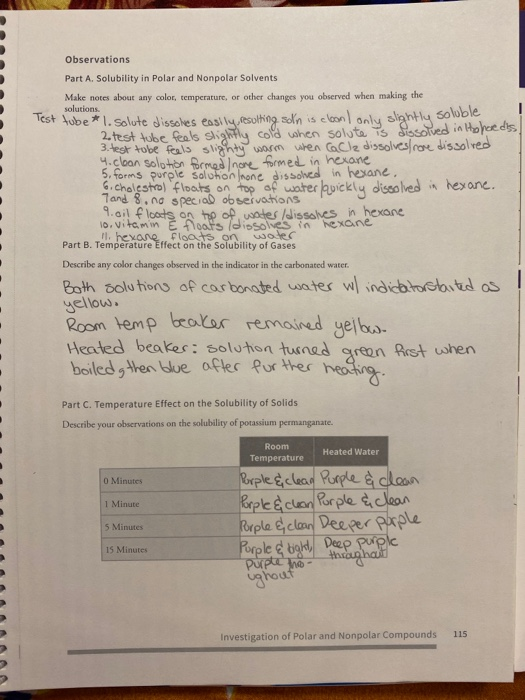 Observations
Part A. Solubility in Polar and Nonpolar Solvents
Make notes about any color, temperature, or other changes you observed when making the
solutions.
Test tube * 1. Solute dissolves easily, resulting sol'n is clean / only slightly soluble
2. test tube feels slightly cold when solute is dissolved in H2O
3. test tube feels slighty warm when CaCl2 dissolves/none dissolved
4. clean solution formed/none formed in hexane
5. forms purple solution/none dissolved in hexane.
6. cholestral floats on top of water/quickly dissolved in hexane.
7 and 8. no special observations
9. oil floats on top of water/dissolves in hexane
10. vitamin E floats/dissolves in hexane
11. hexane floats on water
Part B. Temperature Effect on the Solubility of Gases
Describe any color changes observed in the indicator in the carbonated water.
Both solutions of carbonated water w/ indicator started as
yellow.
Room temp beaker remained yellow.
Heated beaker: solution turned green first when
boiled, then blue after further heating.
Part C. Temperature Effect on the Solubility of Solids
Describe your observations on the solubility of potassium permanganate.
Room Temperature Heated Water
0 Minutes Purple & clean Purple & clean
1 Minute Purple & clean Purple & clean
5 Minutes Purple & clean Deeper purple
15 Minutes Purple & light, Deep purple
purple thro- throughout
ughout
Investigation of Polar and Nonpolar Compounds 115